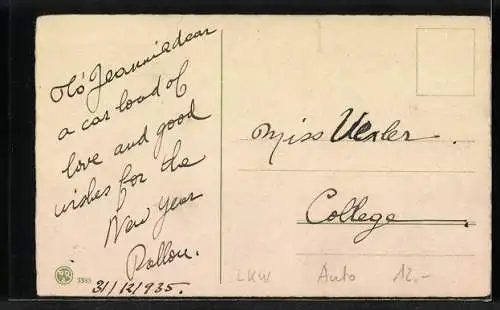 Jeannie dear
a car load of
love and good
wishes for the
New Year
31/12/935.
Miss
College
LKW Auto 12.-